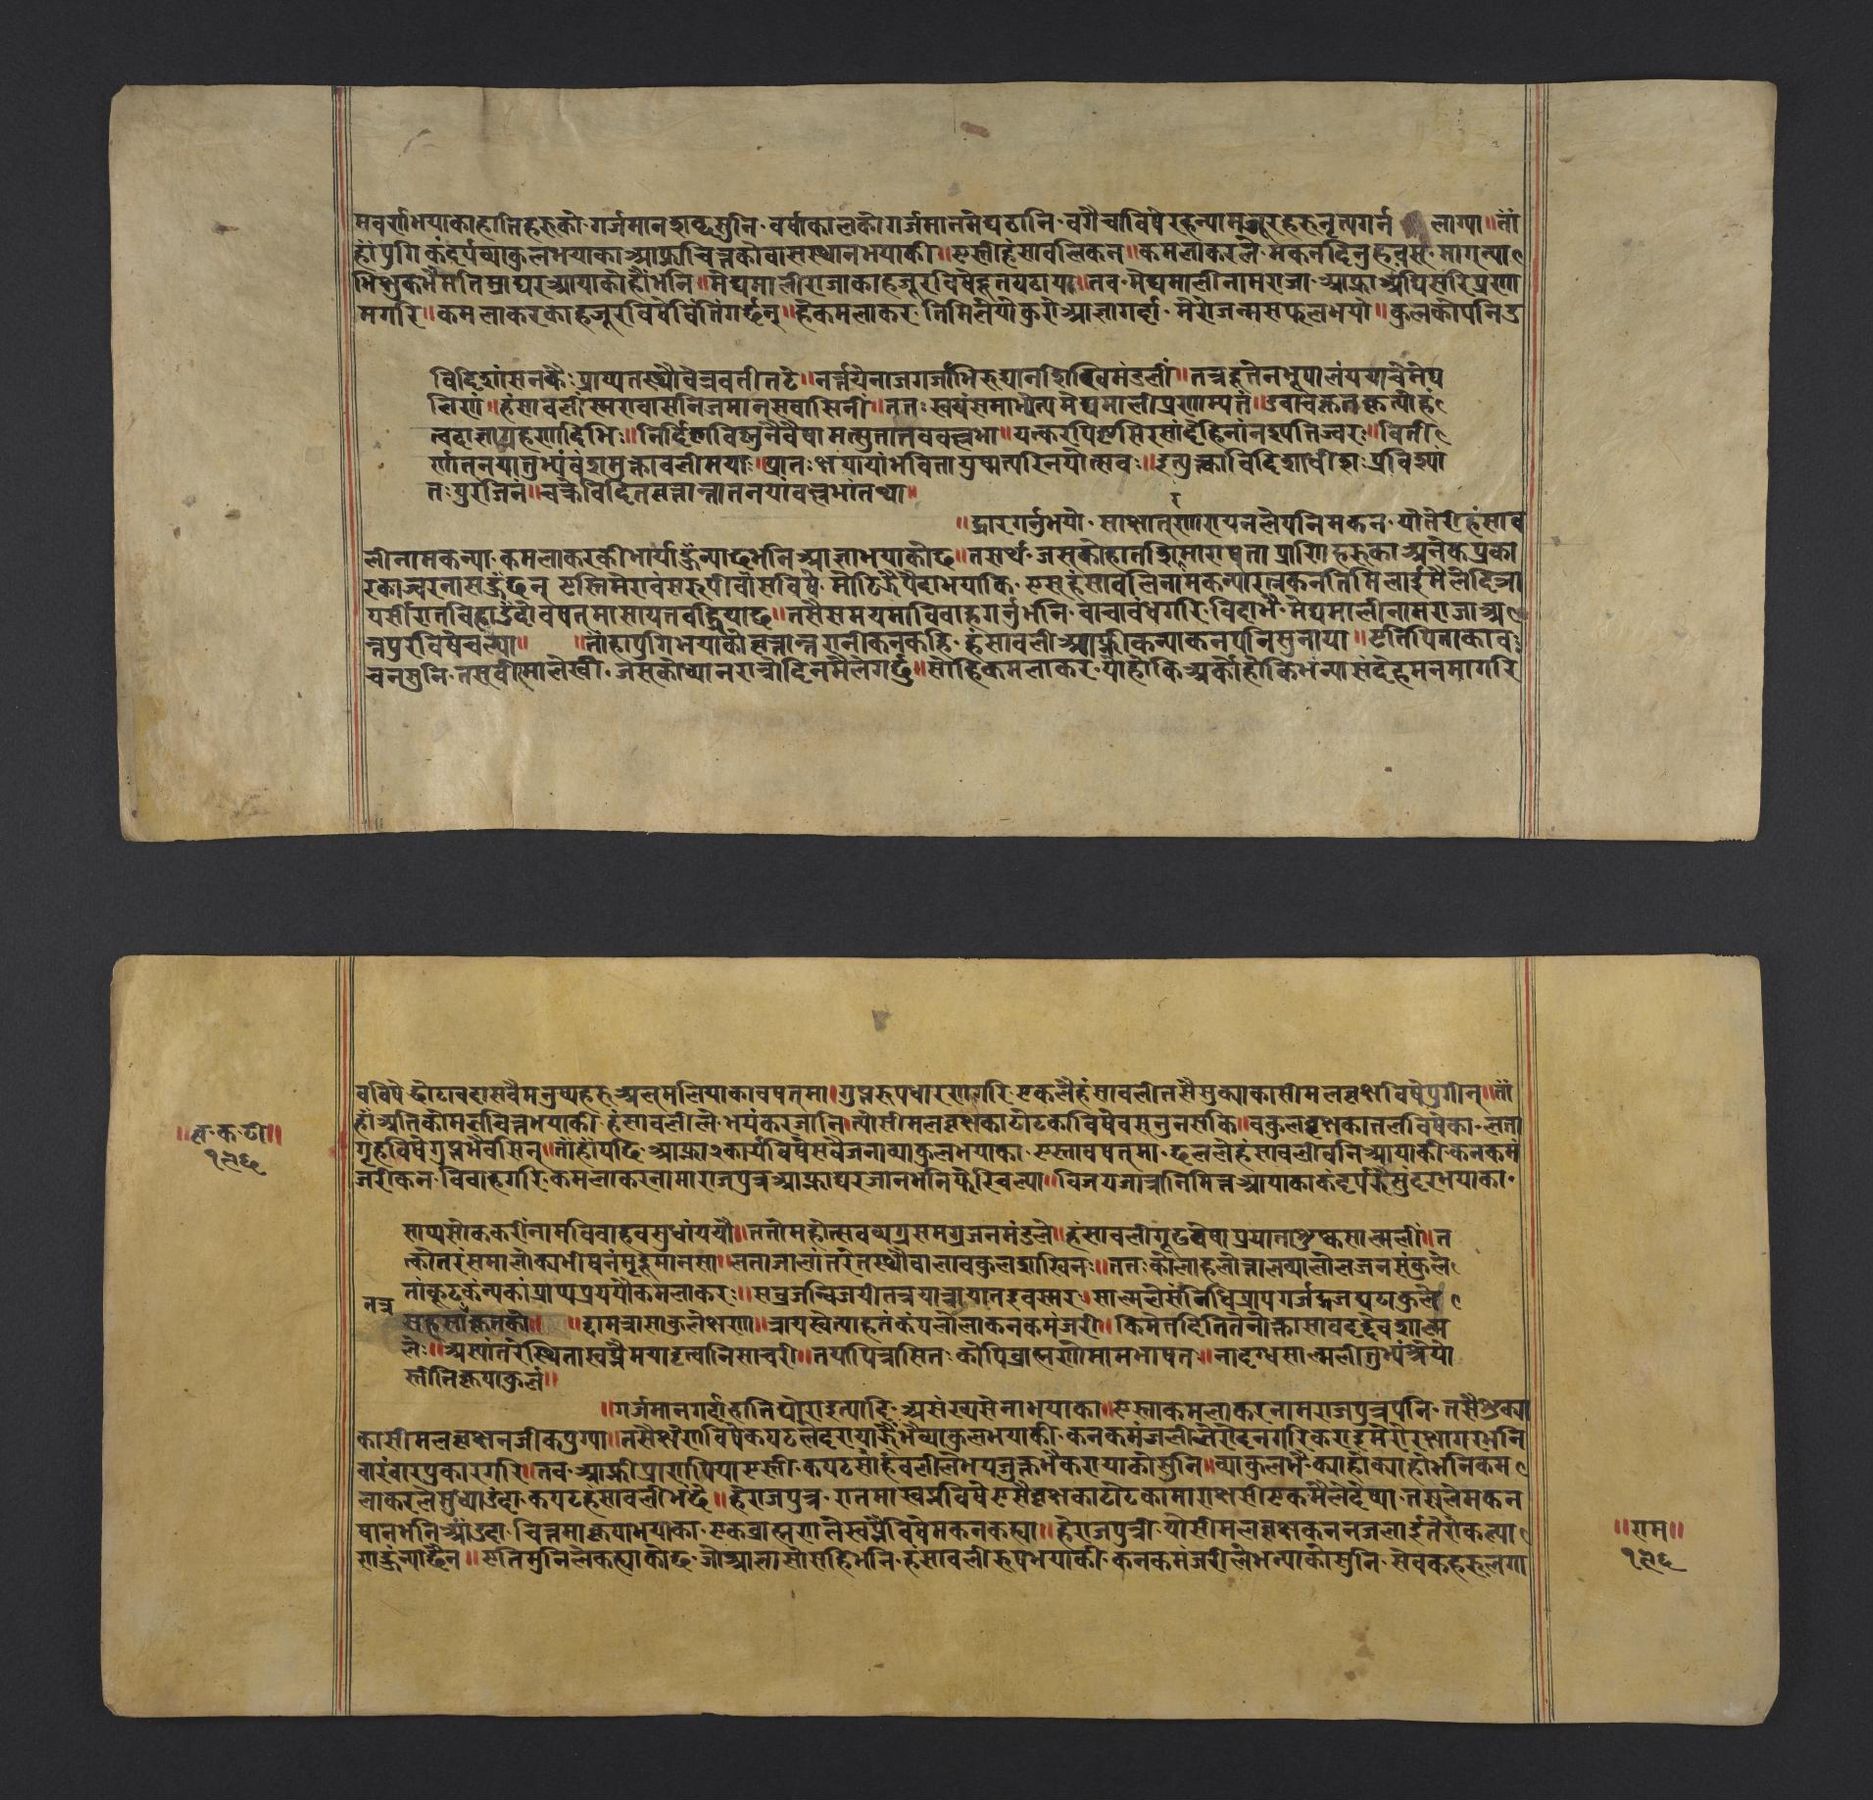 मवर्णभयाकाहात्तिहरुको गर्जमानशब्दसुनि वर्षाकालको गर्जमानमेघठानि वगैचाविषेरहन्यामजूरहरुनृत्यगर्न लाग्या॥ताँ
हाँ पुगि कंदर्पव्याकुलभयाका आफ्नाचित्तकोवासस्थानभयाकी॥एस्तीहंसावलिकन॥कमलाकरले मकनदिनुहवस् मागन्या
भिक्षुकमै मतिम्राघरआयाकोहौंभनि॥मेघमालीराजाकाहजूरविषेदूतपठाया॥तव मेघमालीनामराजा आफ्नाअघिसरिप्रणा
मगरि॥कमलाकरकाहजूरविषेविंतिंगर्छन्॥हेकमलाकर तिमिलेयोकुरोआज्ञागर्दा मेरोजन्मसफलभयो॥कुलकोपनिउ
विदिशांसनकैः प्राप्यतस्थौवेत्रवतीतटे॥नर्त्तयेनाजगर्जाभिरुद्यानशिखिमंडलीं॥तत्रदूतेनभूपालंययाचेमेघ
लिणं॥हंसावलीं स्मरावासनिजमानसवासिनीं॥ततः स्वयंसमाभ्येत्य मेघमालीप्रणम्यतं॥उवाचकृतकृत्योहं
त्वदाज्ञाग्रहणादिभिः॥निर्दिष्टाविष्णुनैवैषा मत्सुतातववल्लभा॥यत्करपिष्टसिरसांदेहिनांनश्पतिज्वरः॥विती
र्णातनयातुभ्यंवंशमुक्तावलीमया॥प्रातः क्षपायांभवितायुष्मत्परिनयोत्सवः॥इत्युक्त्वाविदिशाधीशः प्रविश्यां
तःपुरंजिनं॥चक्रेविदितवृत्तान्तातनयांवल्लभांतथा॥
॥द्धारगर्नुभयो साक्षात्नारायनलेपनिमकन योतेरीहंसाव
लीनामकन्या कमलाकरकीभार्याहुँन्याछभनि आज्ञाभयाकोछ॥तसर्थ जसकोहातशिरमाराषता प्राणिहरुका अनेकप्रका
रकाज्वरनासहुंछन् एस्तिमेरावंसरुपीवांसविषे मोतिझैपैदाभयाकि एसहंसावलिनामकन्यारत्नकनतिमिलाईमैलेदिञा
पर्सीरातविहाउंदोवषत्मासायतवढियाछ॥तसैसमयमाविवाहगर्नुभनि वाचावंधगरि विदाभै मेघमालीनामराजाअ
न्तपुरविषेचल्या॥ ॥ताँहापुगिभयाकोवृत्तान्तरानीकनकहि हंसावलीआफ्नीकन्याकनपनिसुनाया॥एतिपिताकाव
चनसुनि तसवीर्मालेखी जसकोध्यानरात्रौदिनमैलेगर्छु॥सोहिकमलाकर योहोकिअर्कोहोकिभन्यासंदेहमनमागरि
ववषे छोटावडासवैमनुष्यहरुअलमलियाकावषतमा॥गुप्तरूपधारणगरि एकलैहंसावलीतसैसुक्याकासीमलवृक्षविषेपुगीन्॥ताँ
हाँअतिकोमलचित्तभयाकी हंसावलीले भयंकारजानि॥त्योसीमलवृक्षकाटोटकाविषेवसनुनसकि॥वकुलवृक्षकातलविषेका लता
गृहविषेगुप्तभैवसिन्॥ताँहाँपछि आफ्ना२कार्यविषेसवैजनाव्याकुलभयाका एस्तावषत्मा छललेहंसावलीवनिआयाकी कनकमं
जरीकन विवाहगरि कमलाकरनामाराजपुत्रआफ्नाघरजानभनिफेरिचल्या॥विजययात्रानिमित्तआयाकाकंदर्पझैसुंदरभयाका
सोप्यसोककरींनामविवाहवसुधांययौ॥ततोमहोत्सवव्यग्रसमग्रजनमंडले॥हंसावलीगूढवेषाप्रयाताशुष्कसाल्मलीं॥त
त्कोतरंसमालोक्यभीषनंमृदुमानसा॥लताजालांतरेतस्थौवालावकुलशाखिनः॥ततः कोलाहलोत्तालव्यालोलजनसंकुले
तांकूटकन्यकांप्राप्यप्रययौकमलाकरः॥सव्रजन्विजयीतत्रयात्रायातइवस्मरः॥साल्मलेसंनिधिप्रापगर्जद्गजघटाकुले
तत्र
सहसाकृतको॥ ॥द्दामत्रासाकुलेक्षणा॥त्रायस्वेत्याहतंकंपलोलाकनकमंजरी॥किमेतदितितेनोक्तासावदद्देवशाल्म
लेः॥अस्यांतरेस्थितास्वप्नेमयादृत्वानिसाचरी॥तयापित्रासितः कोपिब्राह्मणोमामभाषत॥नादग्धसाल्मलीतुभ्यंश्रेयो
स्तीनिकृपाकुलं॥
॥गर्जमानगर्दाहात्तिघोराइत्यादि असंख्यसेनाभयाका॥एस्ताकमलाकरनामराजपुत्रपनि तसैशुक्या
कासीमलवृक्षनजीकपुग्या॥तसैक्षणविषेकपटलेडरायाझैंभैव्याकुलभयाकी कनकमंजलीलेरोदनगरिकराइमेरोरक्षागरभनि
वारंवारपुकारगरि॥तव आफ्नीप्राणप्रियाएस्ती कपटसांहंवलीलेभययुक्तभैकरायाकोसुनि॥व्याकुलभै क्याहोक्याहोभनिकम
लाकरलेसुध्याउंदा कपटहंसावलीभंछे॥हेराजपुत्र रातमास्वप्नविषे एसैवृक्षकाटोटकामाराक्षसीएकमैलेदेष्या तसलेमकन
षानभनिआँउदा चित्तमाकृपाभयाका एकब्राह्मणलेस्वप्नैविषेमकनकह्या॥हेराजपुत्री योसीमलवृक्षकननजलाईतेरोकल्या
साहुंन्याछैन॥एतिमुनिलेकह्याकोछ जोआज्ञासोसहिभनि हंसावलीरूपभयाकी कनकमंजरीलेभन्याकोसुनि सेवकहरुलगा
॥वृ॰क॰टी॥
१९६
॥राम॥
१९६